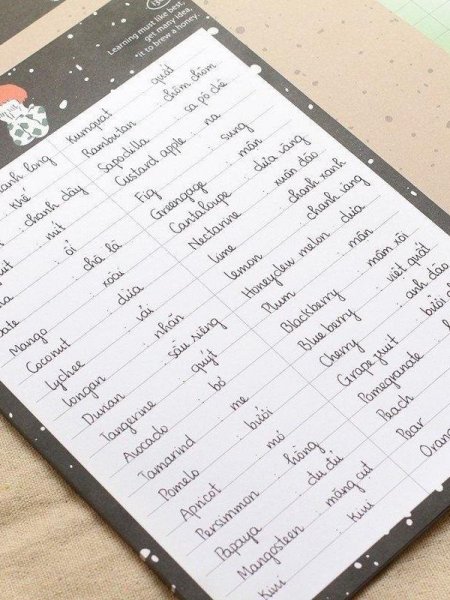 Learning must like best,
get many idea,
*it to brew a honey.
long
khế
: chanh dây
: mít
: ổi
: chà là
Mango : xoài
Coconut : dừa
Lychee : vải
Longan : nhãn
Durian : sầu riêng
Tangerine : quýt
Avocado : bơ
Tamarind : me
Pomelo : bưởi
Apricot : mơ
Persimmon : hồng
Papaya : đu đủ
Mangosteen : măng cụt
Kiwi : Kiwi
Kumquat : quất
Rambutan : chôm chôm
Sapodilla : sa pô chê
Custard apple : na
Fig : sung
Greengage : mận
Cantaloupe : dưa vàng
Nectarine : xuân đào
Lime : chanh xanh
Lemon : chanh vàng
Honeydew melon : dưa
Plum : mận
Blackberry : mâm xôi
Blueberry : việt quất
Cherry : anh đào
Grapefruit : bưởi
Pomegranate
Peach
Pear